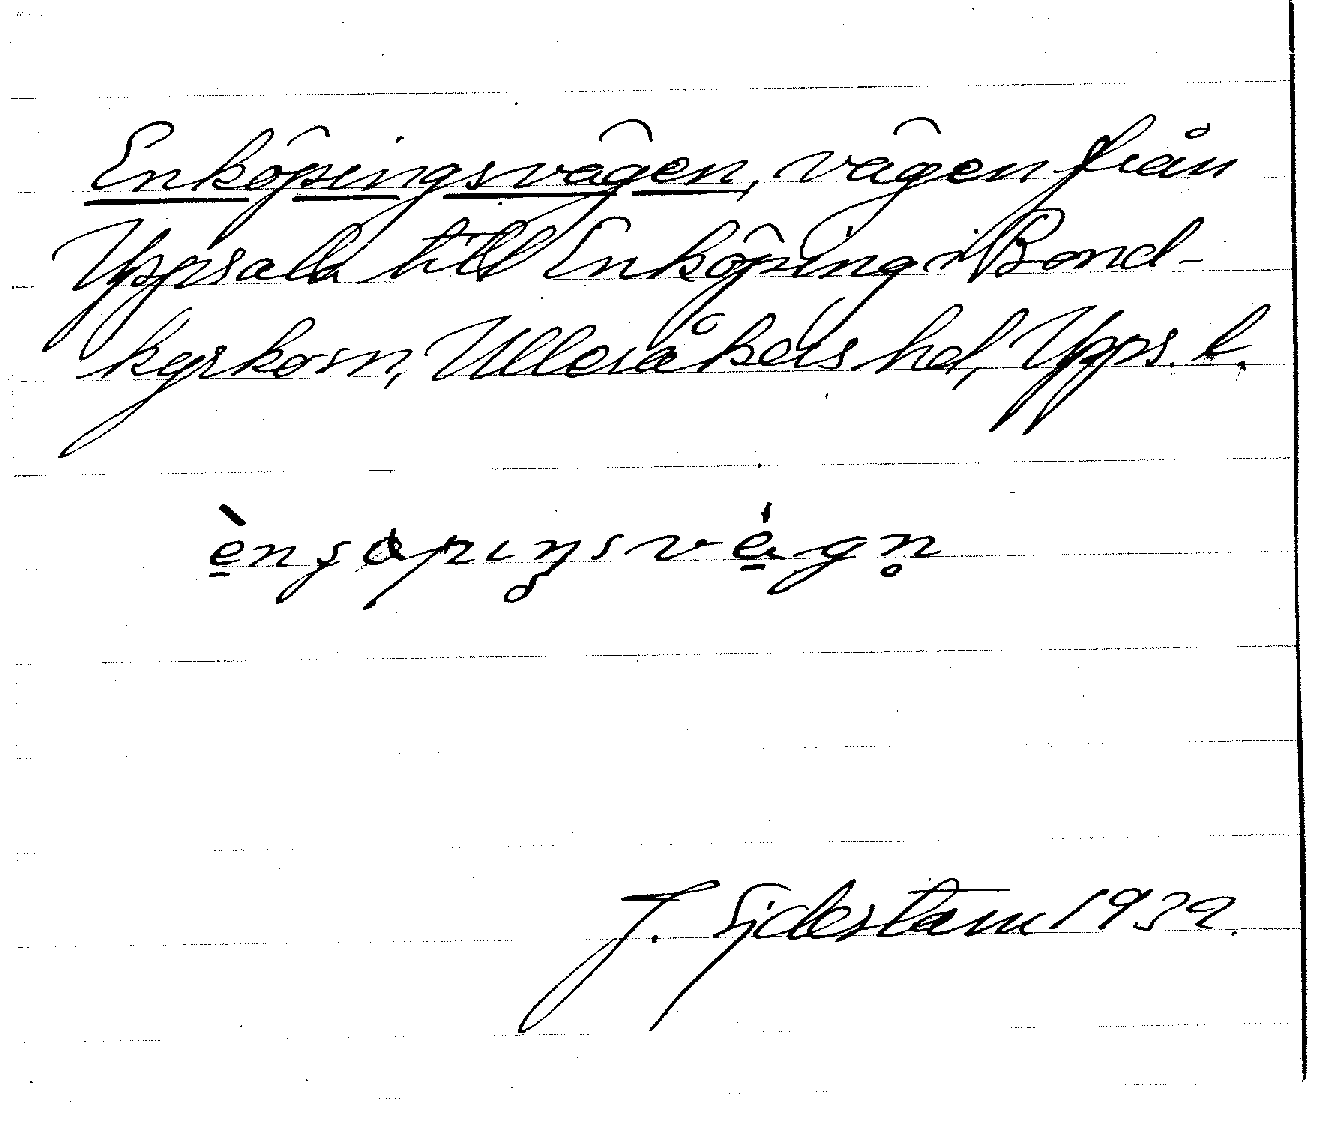 Enköpingsvägen, vägen från
Uppsala till Enköping i Bond-
kyrkosn, Ulleråkers hd, Upps. l.
J. Sjdestam 1932.